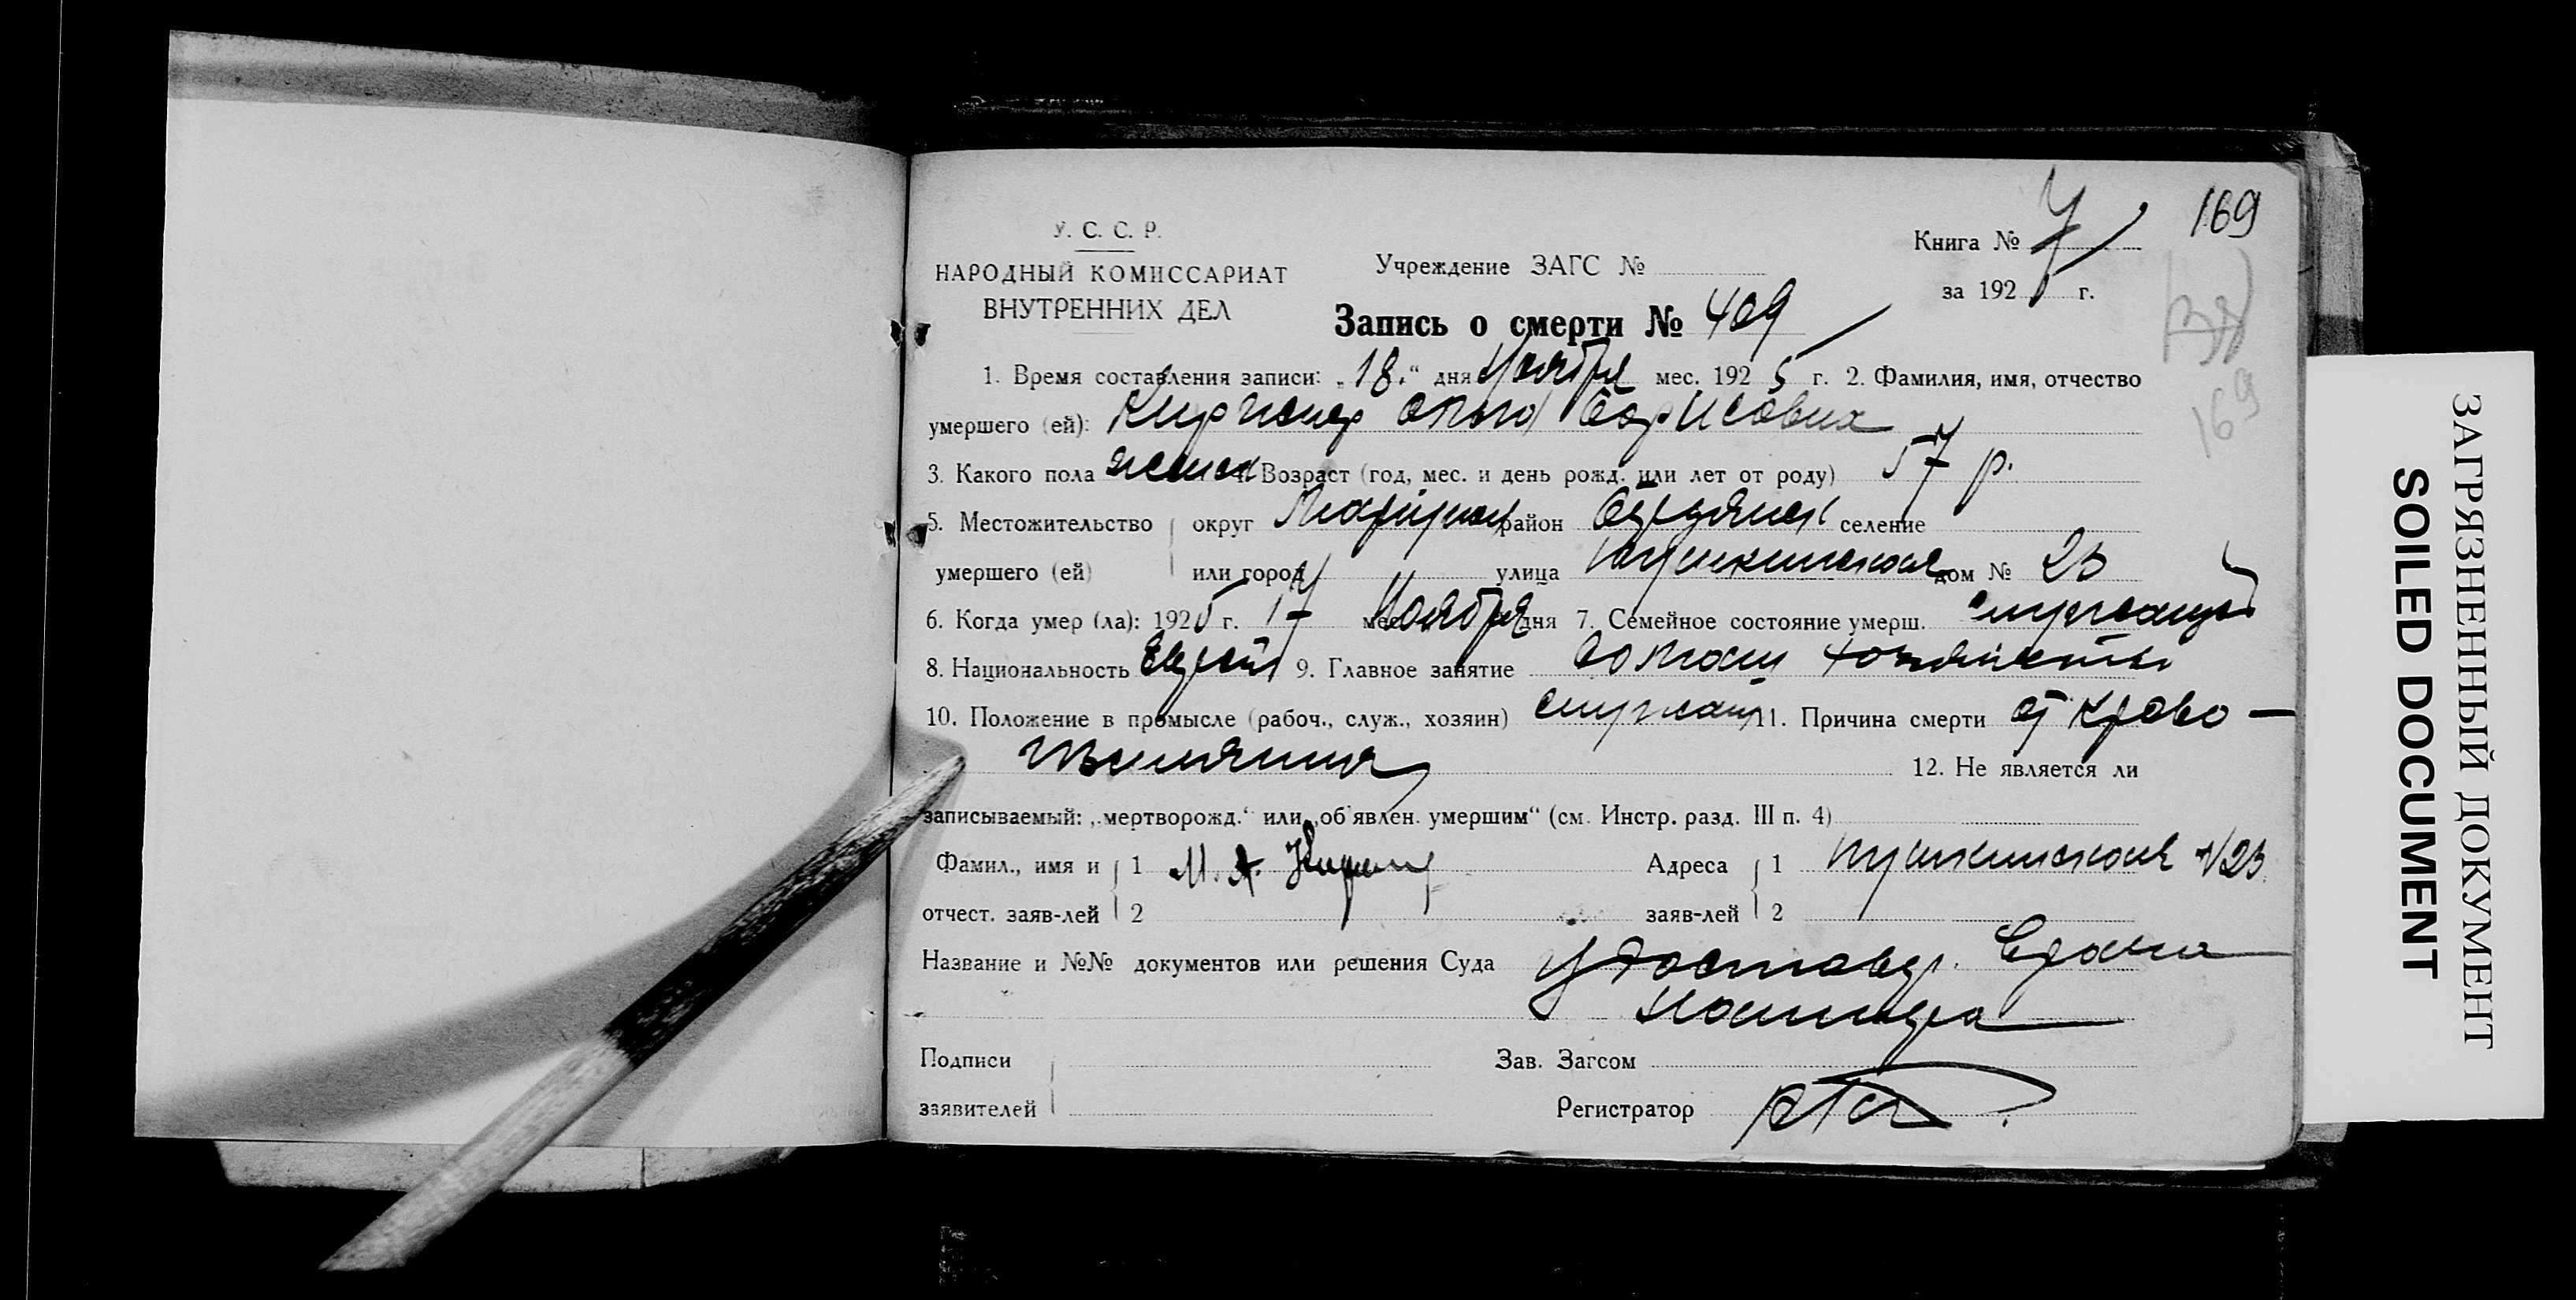 169
У. С. С. Р.
НАРОДНЫЙ КОМИССАРИАТ
ВНУТРЕННИХ ДЕЛ
Учреждение ЗАГС №
Книга № 7
за 1925 г.
Запись о смерти № 409
169
1. Время составления записи: „18.“ дня Ноября мес. 1925 г. 2. Фамилия, имя, отчество
умершего (ей): Борисовна
3. Какого пола женск 4. Возраст (год, мес. и день рожд. или лет от роду) 57 р.
5. Местожительство округ Мариупол район Бердянск селение
умершего (ей) или город улица Пушкинская дом № 23
6. Когда умер (ла): 1925 г. 17 мес. Ноября дня 7. Семейное состояние умерш.
8. Национальность Еврей 9. Главное занятие
10. Положение в промысле (рабоч., служ., хозяин) 11. Причина смерти от крово-
излияния 12. Не является ли
записываемый: „мертворожд.“ или „об'явлен. умершим“ (см. Инстр. разд. III п. 4)
Фамил., имя и 1 М. А. Адреса 1 Пушкинская №23
отчест. заяв-лей 2 заяв-лей 2
Название и №№ документов или решения Суда удостовер. Врача
Подписи Зав. Загсом
заявителей Регистратор
ЗАГРЯЗНЕННЫЙ ДОКУМЕНТ
SOILED DOCUMENT